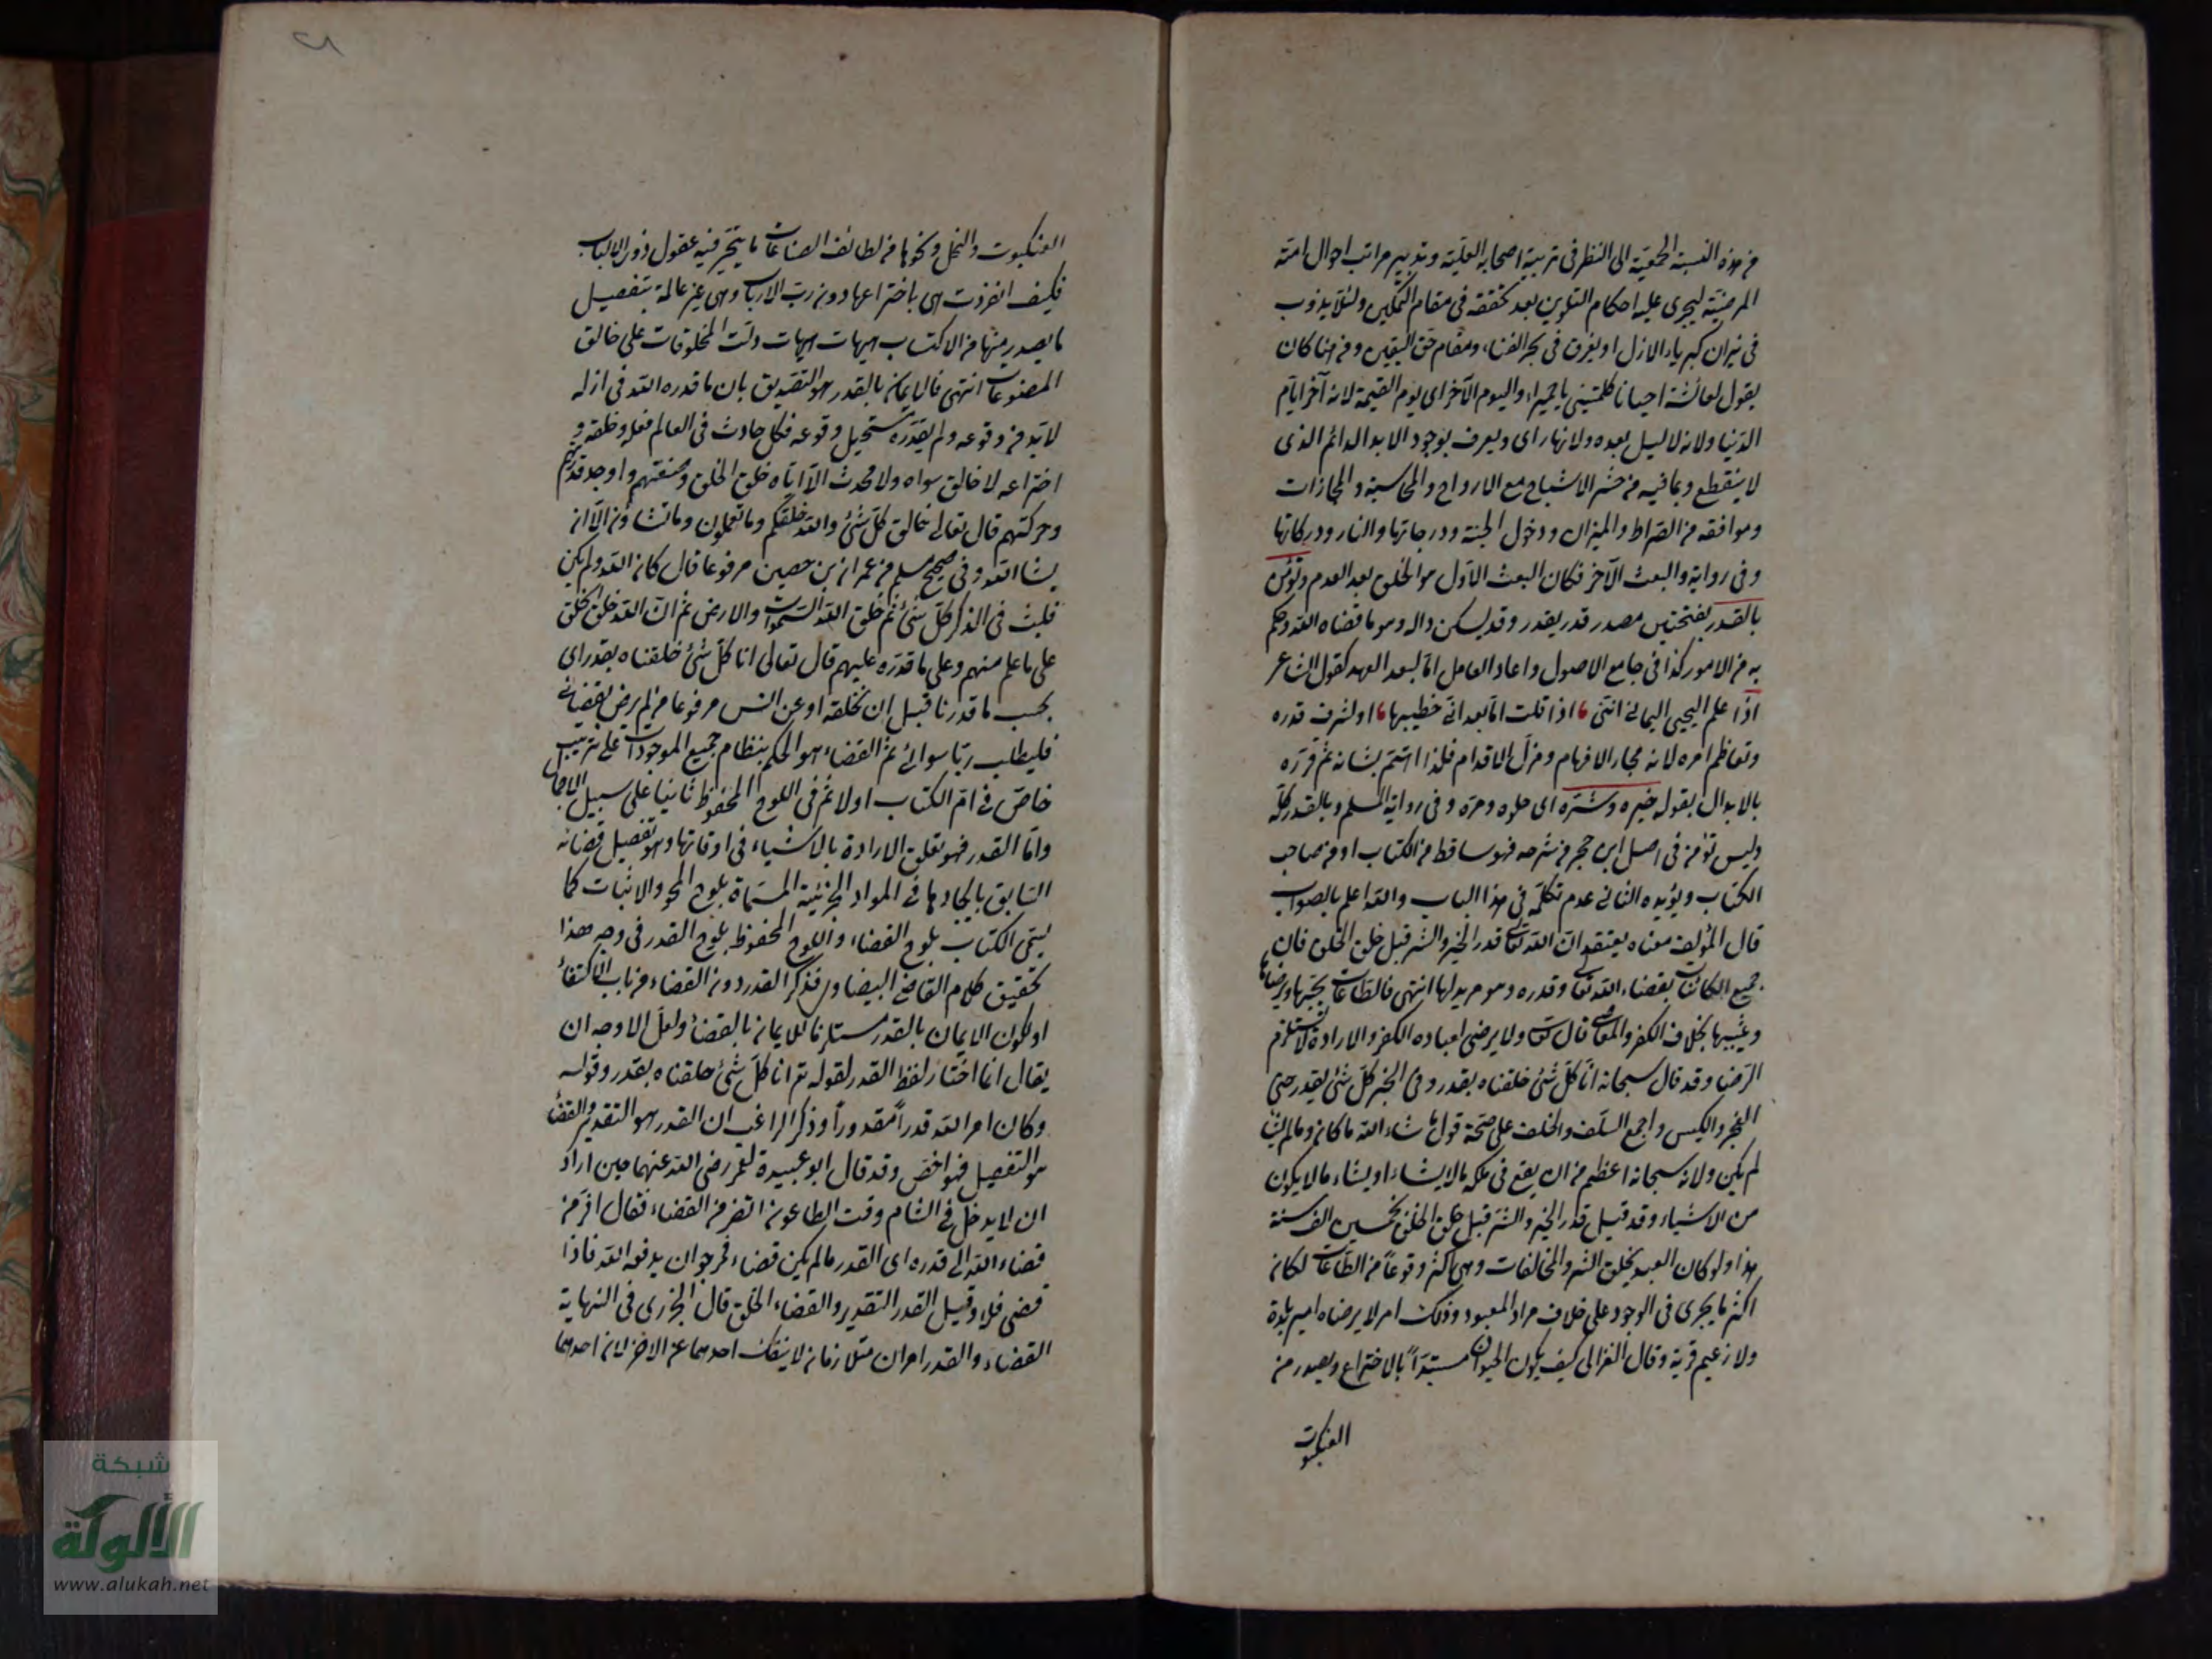 من هذه النسبة الجمعية الى النظر فى تربية اصحابه العلية وتدبير مراتب احوال امته
المرضية ليجرى عليه احكام التلوين بعد تحققه فى مقام التمكين ولئلا يذوب
فى نيران كبرياء الازل او يغرق فى بحر الفناء ومقام حق اليقين ومن هنا كان
يقول لعائشة احيانا كلمينى يا حميراء واليوم الآخر اى يوم القيمة لانه آخر ايام
الدنيا ولانه لا ليل بعده ولا نهار اى ويعرف بوجود الابد الدائم الذى
لا ينقطع وبما فيه من حشر الاشباح مع الارواح والمحاسبة والمجازات
وموافقه من الصراط والميزان ودخول الجنة ودرجاتها والنار ودركاتها
وفى رواية والبعث الآخر فكان البعث الاول هو الخلق بعد العدم وتؤمن
بالقدر بفتحتين مصدر قدر يقدر وقد يسكن داله وهو ما قضاه الله وحكم
به من الامور كذا فى جامع الاصول واعاد العامل اما لبعد العهد كقول الشاعر
اذا علم الحى اليمانى اننى اذا قلت اما بعد انى خطيبها او لشرف قدره
وتعاظم امره لانه مجار الافهام ومزل الاقدام فلذا اهتم بشانه ثم قرره
بالابدال بقوله خيره وشره اى حلوه ومره وفى رواية لمسلم وبالقدر كله
وليس تؤمن فى اصل ابن حجر من شرحه فهو ساقط من الكتاب او من صاحب
الكتاب ويؤيده الثانى عدم تكلمه فى هذا الباب والله اعلم بالصواب
قال المؤلف معناه يعتقد ان الله تعالى قدر الخير والشر قبل خلق الخلق فان
جميع الكائنات بقضاء الله تعالى وقدره وهو مريد لها انتهى فالطاعات يحبها ويرضاها
ويثيبها بخلاف الكفر والمعاصى قال تعالى ولا يرضى لعباده الكفر والارادة لا تستلزم
الرضا وقد قال سبحانه انا كل شئ خلقناه بقدر وفى الخبر كل شئ بقدر حتى
العجز والكيس واجمع السلف والخلف على صحة قول ما شاء الله ما كان وما لم يشا
لم يكن ولانه سبحانه اعظم من ان يقع فى ملكه ما لا يشاء او يشاء ما لا يكون
من الاشياء وقد قيل قدر الخير والشر قبل خلق الخلق بخمسين الف سنة
هذا ولو كان العبد يخلق الشر والمخالفات وهى اكثر وقوعاً من الطاعات لكان
اكثر ما يجرى فى الوجود على خلاف مراد المعبود وذلك امر لا يرضاه امير بلدة
ولا زعيم قرية وقال الغزالى كيف يكون الحيوان مستبداً بالاختراع ويصدر من
العنكبوت
العنكبوت والنحل ونحوها من لطائف الصناعات ما يتحير فيه عقول ذوى الالباب
فكيف انفردت هى باختراعها دون رب الارباب وهى غير عالمة بتفصيل
ما يصدر منها من الاكتساب هيهات هيهات دلت المخلوقات على خالق
المصنوعات انتهى فالايمان بالقدر هو التصديق بان ما قدره الله فى ازله
لا بد من وقوعه ولم يقدره يستحيل وقوعه فكل حادث فى العالم فعله وخلقه و
اختراعه لا خالق سواه ولا محدث الا اياه خلق الخلق وصنعتهم واوجد قدرتهم
وحركتهم قال تعالى خالق كل شئ والله خلقكم وما تعملون وما تشاؤن الا ان
يشا الله وفى صحيح مسلم عن عمران بن حصين مرفوعا قال كان الله ولم يكن
فكتب فى الذكر كل شئ ثم خلق الله السموات والارض ثم ان الله خلق الخلق
على ما علم منهم وعلى ما قدره عليهم قال تعالى انا كل شئ خلقناه بقدر اى
بحسب ما قدرنا قبل ان نخلقه او عن انس مرفوعا من لم يرض بقضائى
فليطلب ربا سوائى ثم القضاء هو الحكم بنظام جميع الموجودات على ترتيب
خاص فى ام الكتاب اولا ثم فى اللوح المحفوظ ثانيا على سبيل الاجمال
واما القدر فهو تعلق الارادة بالاشياء فى اوقاتها وهو تفصيل قضائه
السابق بايجادها فى المواد الجزئية المسماة بلوح المحو والاثبات كما
يسمى الكتاب بلوح القضاء واللوح المحفوظ بلوح القدر فى وجه هذا
تحقيق كلام القاضى البيضاوى فذكر القدر دون القضاء من باب الاكتفاء
او لكون الايمان بالقدر مستلزما للايمان بالقضاء ولعل الاوجه ان
يقال انما اختار لفظ القدر لقوله تع انا كل شئ خلقناه بقدر وقوله
وكان امر الله قدراً مقدوراً وذكر الراغب ان القدر هو التقدير والقضاء
هو التفصيل فهو اخص وقد قال ابو عبيدة لعمر رضى الله عنهما حين اراد
ان لا يدخل فى الشام وقت الطاعون اتفر من القضاء فقال افر من
قضاء الله الى قدره اى القدر ما لم يكن قضاء فمرجو ان يدفعه الله فاذا
قضى فلا وقيل القدر التقدير والقضاء الخلق قال الجزرى فى النهاية
القضاء والقدر امران متلازمان لا ينفك احدهما عن الاخر لان احدهما
شبكة
الألوكة
www.alukah.net